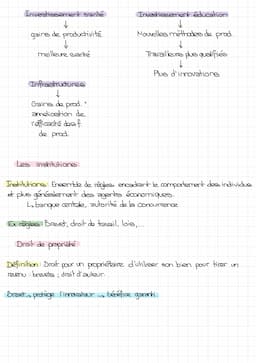 Investissement santé
↓
gains de productivité
↓
meilleure santé
Investissement éducation
↓
Nouvelles méthodes de prod.
↓
Travailleurs plus qualifiés
↓
Plus d'innovations
Infrastructures
↓
Gains de prod.
amélioration de
l'efficacité des f.
de prod.
Les institutions
Institutions: Ensemble de règles encadrant le comportement des individus
et plus généralement des agents économiques.
↳ banque centrale, autorité de la concurrence
Ex règles: Brevet, droit du travail, lois,...
Droit de propriété
Définition: Droit pour un propriétaire d'utiliser son bien pour tirer un
revenu: brevets; droit d'auteur.
Brevet → protège l'innovateur → bénéfice garanti